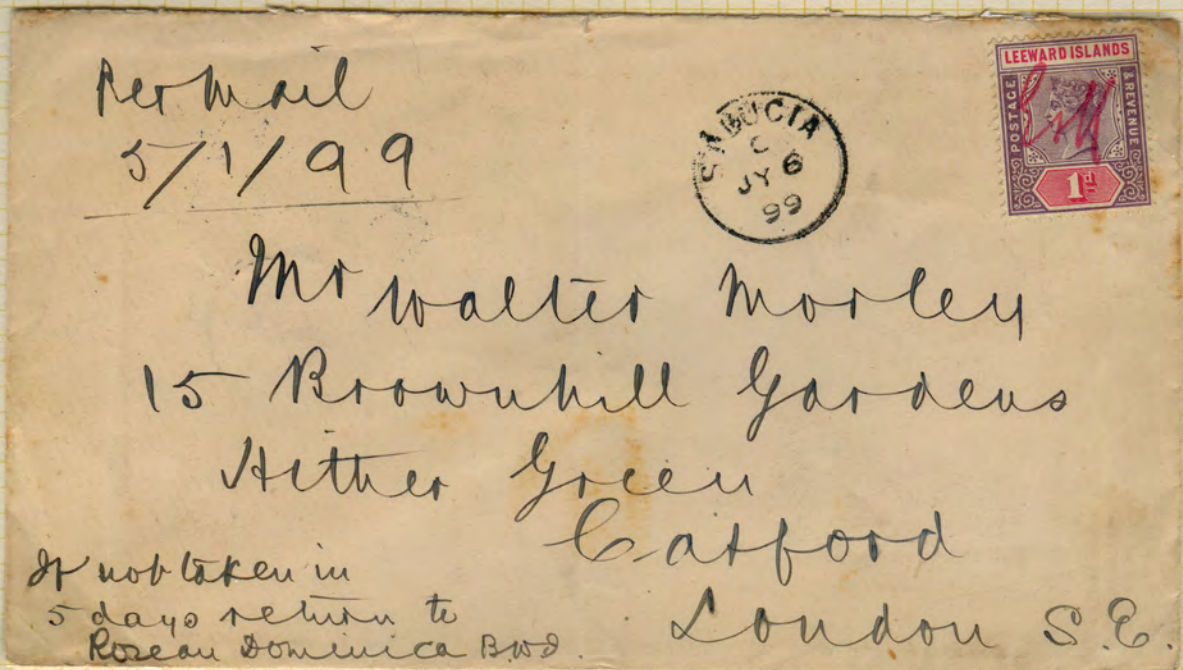 Per Mail
5/1/99
ST LUCIA
C
JY 6
99
LEEWARD ISLANDS
POSTAGE
& REVENUE
1d
Mr Walter Morley
15 Brownhill Gardens
Hither Green
Catford
London S.E.
If not taken in
5 days return to
Roseau Dominica B.W.I.